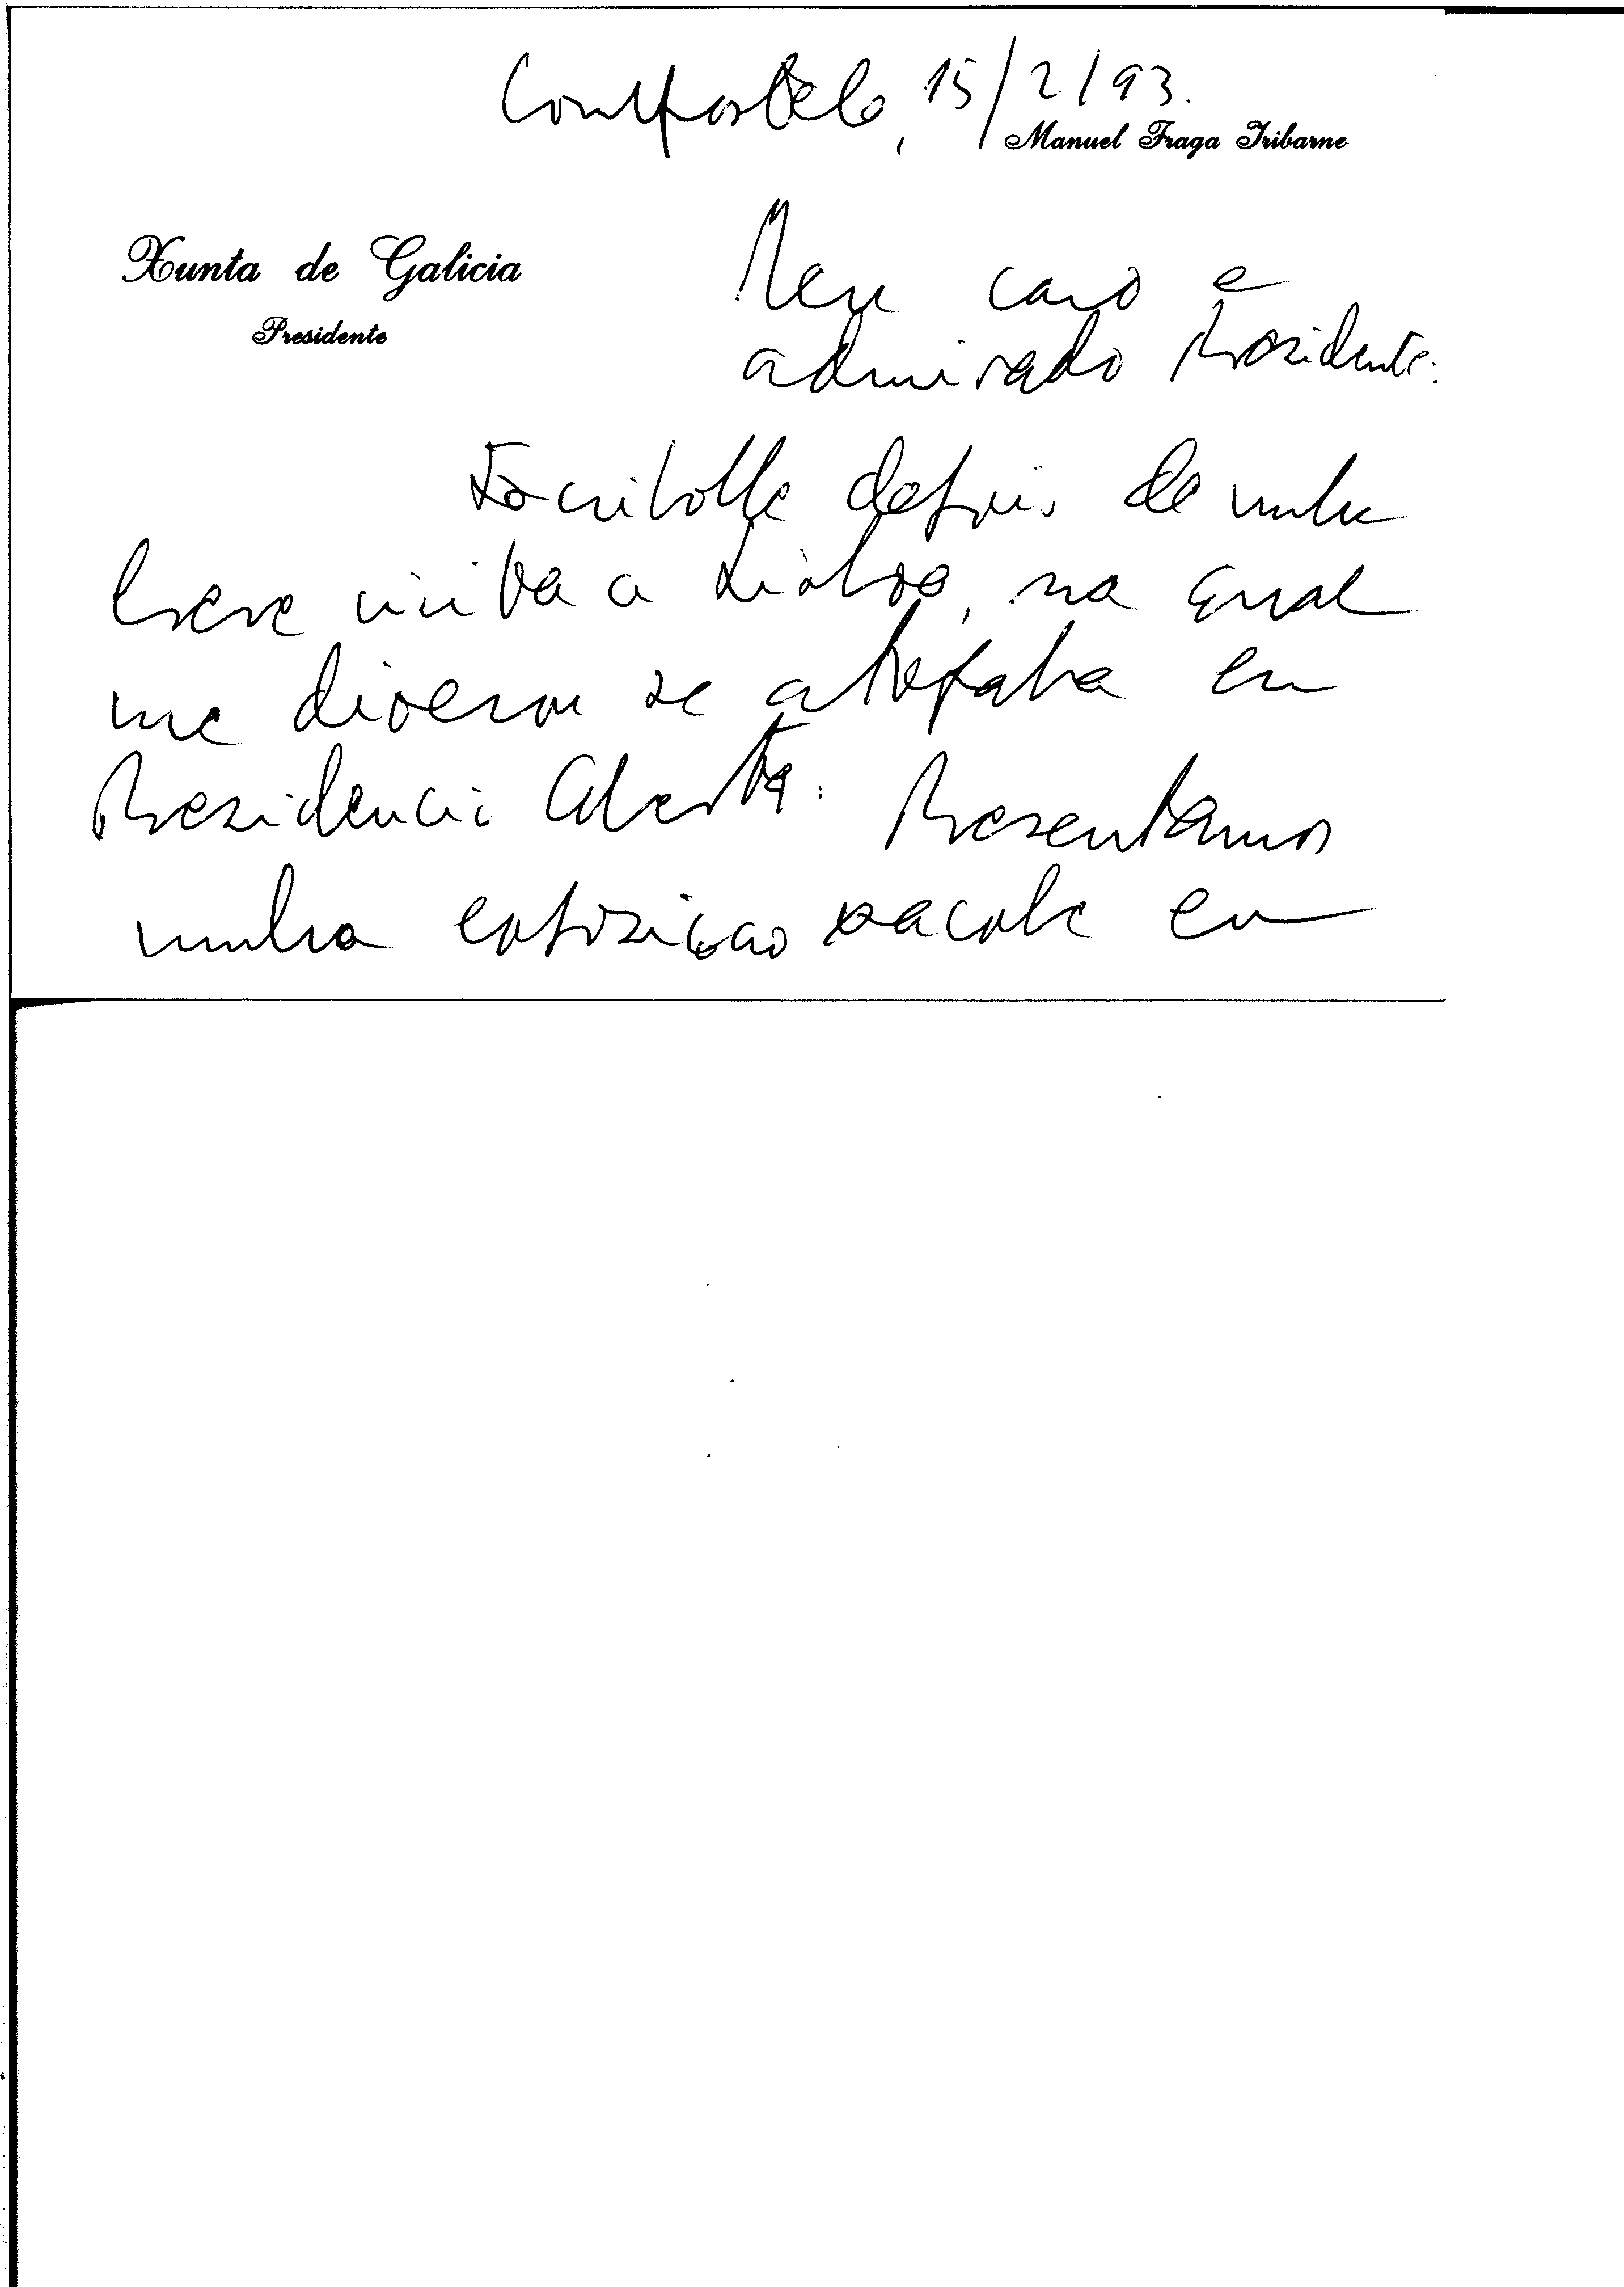 Compostela, 15/2/93.
Manuel Fraga Iribarne
Xunta de Galicia
Presidente
Meu caro e
admirado Presidente:
Escribolle despois de unha
breve visita a Lisboa, na qual
me dixeron se atopaba en
Presidencia Aberta. Presentamos
unha exposiçao xacobe en